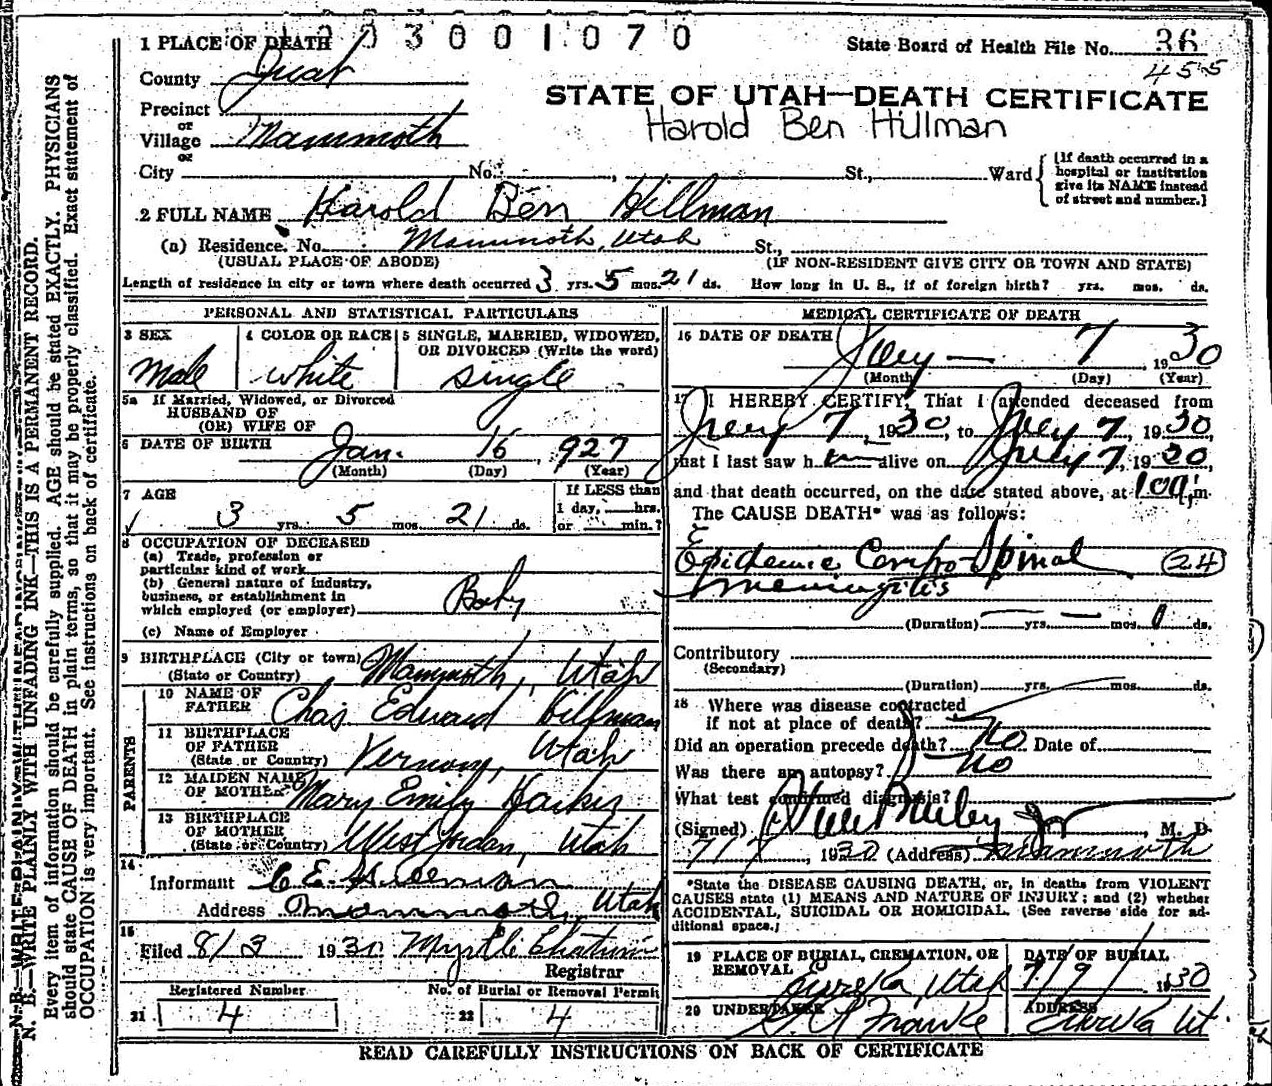 1 PLACE OF DEATH 003001070 State Board of Health File No. 36
County Juab 455
Precinct
or
Village Mammoth
or
City No. , St., Ward
STATE OF UTAH—DEATH CERTIFICATE
Harold Ben Hillman
[If death occurred in a
hospital or institution
give its NAME instead
of street and number.]
2 FULL NAME Harold Ben Hillman
(a) Residence. No. Mammoth, Utah St.,
(USUAL PLACE OF ABODE) (IF NON-RESIDENT GIVE CITY OR TOWN AND STATE)
Length of residence in city or town where death occurred 3 yrs. 5 mos. 21 ds. How long in U. S., if of foreign birth? yrs. mos. ds.
PERSONAL AND STATISTICAL PARTICULARS
3 SEX 4 COLOR OR RACE 5 SINGLE, MARRIED, WIDOWED,
OR DIVORCED (Write the word)
Male white single
5a If Married, Widowed, or Divorced
HUSBAND OF
(OR) WIFE OF
6 DATE OF BIRTH Jan. 16, 927
(Month) (Day) (Year)
7 AGE If LESS than
3 yrs. 5 mos. 21 ds. 1 day, hrs.
or min.?
8 OCCUPATION OF DECEASED
(a) Trade, profession or
particular kind of work
(b) General nature of industry,
business, or establishment in
which employed (or employer) Baby
(c) Name of Employer
9 BIRTHPLACE (City or town) Mammoth, Utah
(State or Country)
PARENTS
10 NAME OF
FATHER Chas Edward Hillman
11 BIRTHPLACE
OF FATHER Vernon, Utah
(State or Country)
12 MAIDEN NAME
OF MOTHER Mary Emily Harker
13 BIRTHPLACE
OF MOTHER West Jordan, Utah
(State or Country)
14
Informant C E Hillman
Address Mammoth, Utah
15
Filed 8/3 1930 Myrtle
Registrar
Registered Number No. of Burial or Removal Permit
21 4 22 4
MEDICAL CERTIFICATE OF DEATH
16 DATE OF DEATH July 7 1930
(Month) (Day) (Year)
17 I HEREBY CERTIFY, That I attended deceased from
July 7, 1930, to July 7, 1930,
that I last saw h alive on July 7, 1930,
and that death occurred, on the date stated above, at m.
The CAUSE DEATH* was as follows:
Epidemic Cerebro-Spinal (24)
Meningitis
(Duration) yrs. mos. 1 ds.
Contributory
(Secondary)
(Duration) yrs. mos. ds.
18 Where was disease contracted
if not at place of death?
Did an operation precede death? No Date of
Was there an autopsy? No
What test confirmed diagnosis?
(Signed) Steele Bailey Jr, M. D.
7/7, 1930 (Address) Mammoth
*State the DISEASE CAUSING DEATH, or, in deaths from VIOLENT
CAUSES state (1) MEANS AND NATURE OF INJURY; and (2) whether
ACCIDENTAL, SUICIDAL OR HOMICIDAL. (See reverse side for ad-
ditional space.)
19 PLACE OF BURIAL, CREMATION, OR
REMOVAL Eureka, Utah
DATE OF BURIAL
7/9/ 1930
20 UNDERTAKER Franke
ADDRESS
Eureka Ut.
READ CAREFULLY INSTRUCTIONS ON BACK OF CERTIFICATE
N. B.—WRITE PLAINLY WITH UNFADING INK—THIS IS A PERMANENT RECORD.
Every item of information should be carefully supplied. AGE should be stated EXACTLY. PHYSICIANS
should state CAUSE OF DEATH in plain terms, so that it may be properly classified. Exact statement of
OCCUPATION is very important. See instructions on back of certificate.